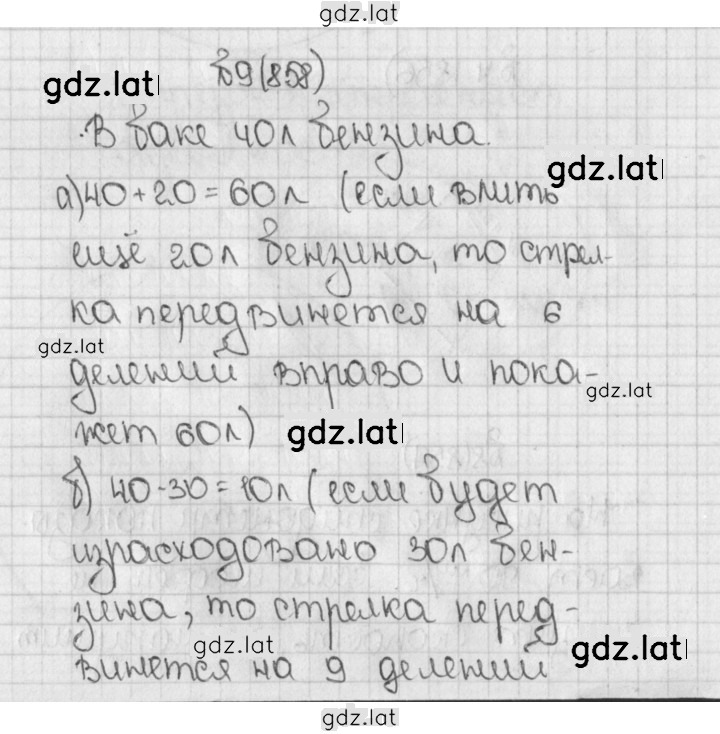 gdz.lat
№9(858)
gdz.lat
В баке 40л бензина.
gdz.lat
а) 40+20=60л (если влить
ещё 20л бензина, то стрел-
ка передвинется на 6
gdz.lat
делений вправо и пока-
gdz.lat
жет 60л)
gdz.lat
б) 40-30=10л (если будет
израсходовано 30л бен-
зина, то стрелка перед-
gdz.lat
винется на 9 делений
gdz.lat
gdz.lat